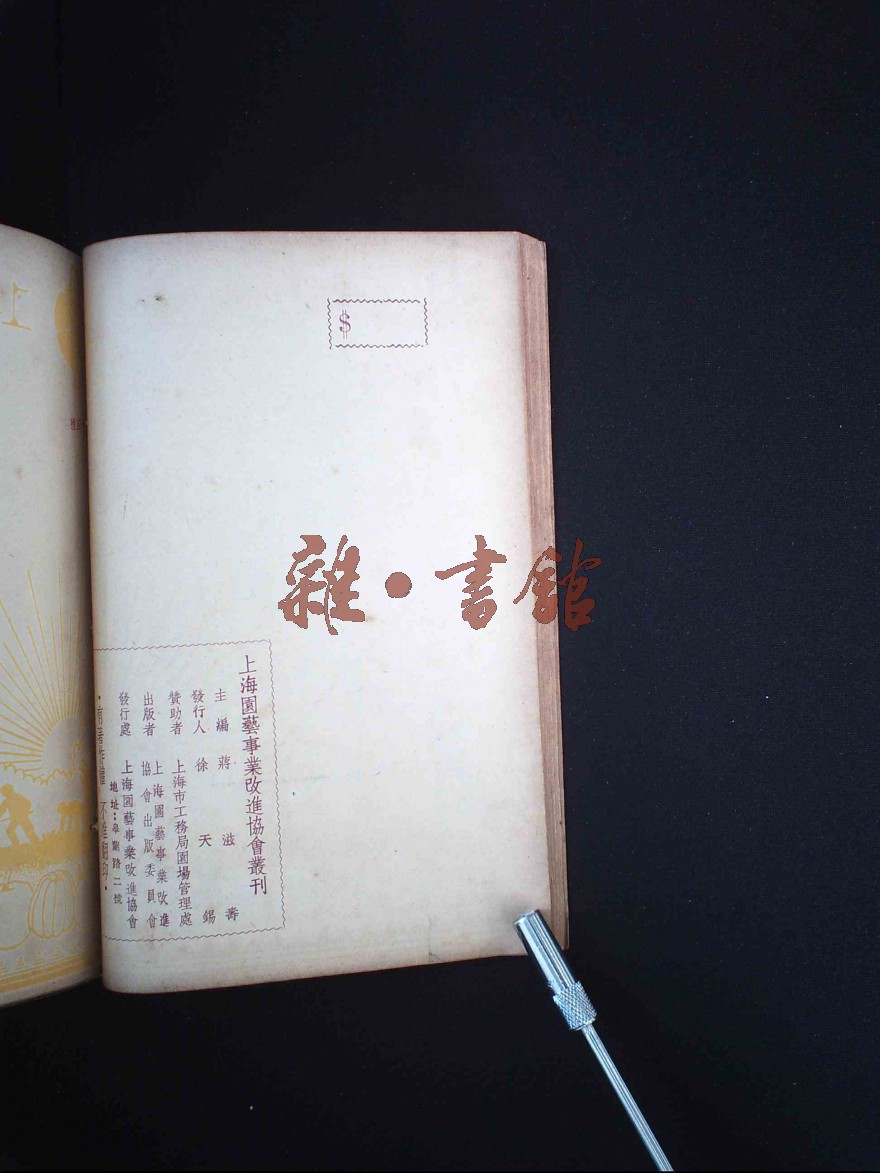 $
雜•書館
上海園藝事業改進協會叢刊
主編 蔣滋壽
發行人 徐天錫
贊助者 上海市工務局園場管理處
出版者 上海園藝事業改進
協會出版委員會
發行處 上海園藝事業改進協會
地址：皋蘭路二號
•有著作權 不准翻印•